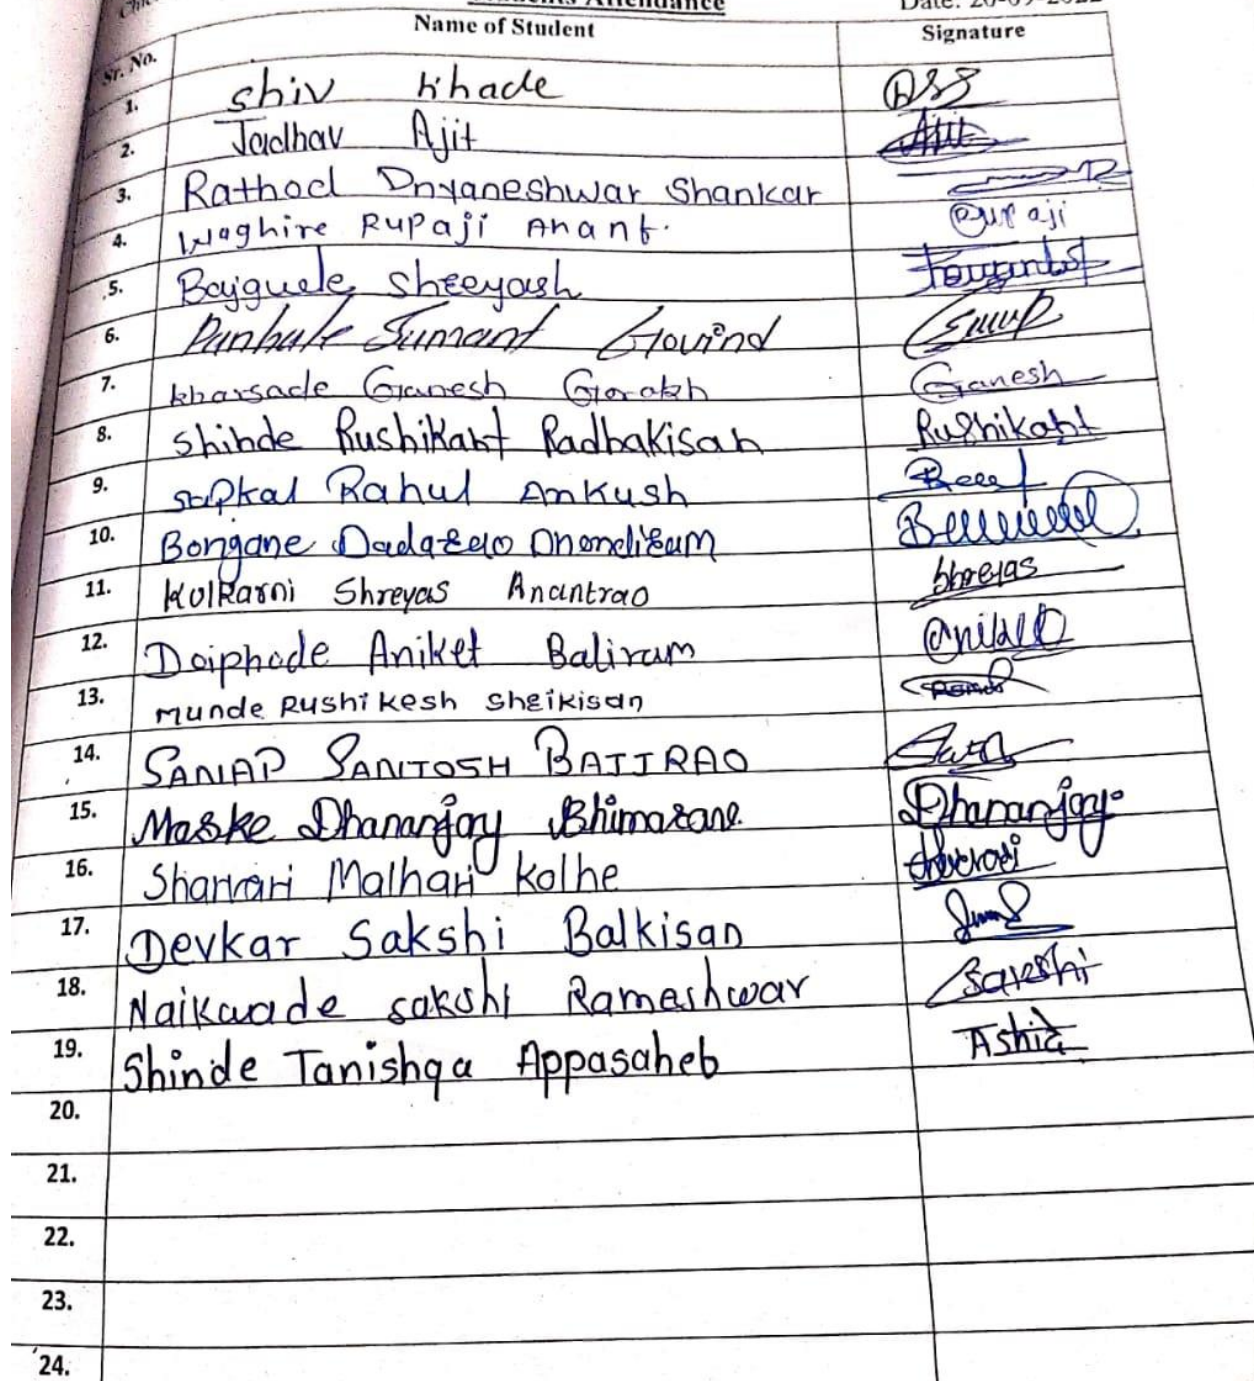 Attendance
Date: 20-09-2022
Sr. No. Name of Student Signature
1. Shiv Khade
2. Jadhav Ajit Ajit
3. Rathod Dnyaneshwar Shankar
4. Waghire Rupaji Anant. Rupaji
5. Bajgude Sheeyash
6. Panhale Sumant Govind
7. Kharsade Ganesh Gorakh Ganesh
8. Shinde Rushikant Radhakisan Rushikant
9. Sapkal Rahul Ankush
10. Bongane Dadarao Dnondiram
11. Kulkarni Shreyas Anantrao Shreyas
12. Doiphode Aniket Baliram Aniket
13. Munde Rushikesh Sheikisan
14. SANAP SANTOSH BAJIRAO
15. Maske Dhananjay Bhimarane Dhananjay
16. Sharvari Malhari Kolhe
17. Devkar Sakshi Balkisan
18. Naikwade Sakshi Rameshwar Sakshi
19. Shinde Tanishqa Appasaheb
20.
21.
22.
23.
24.